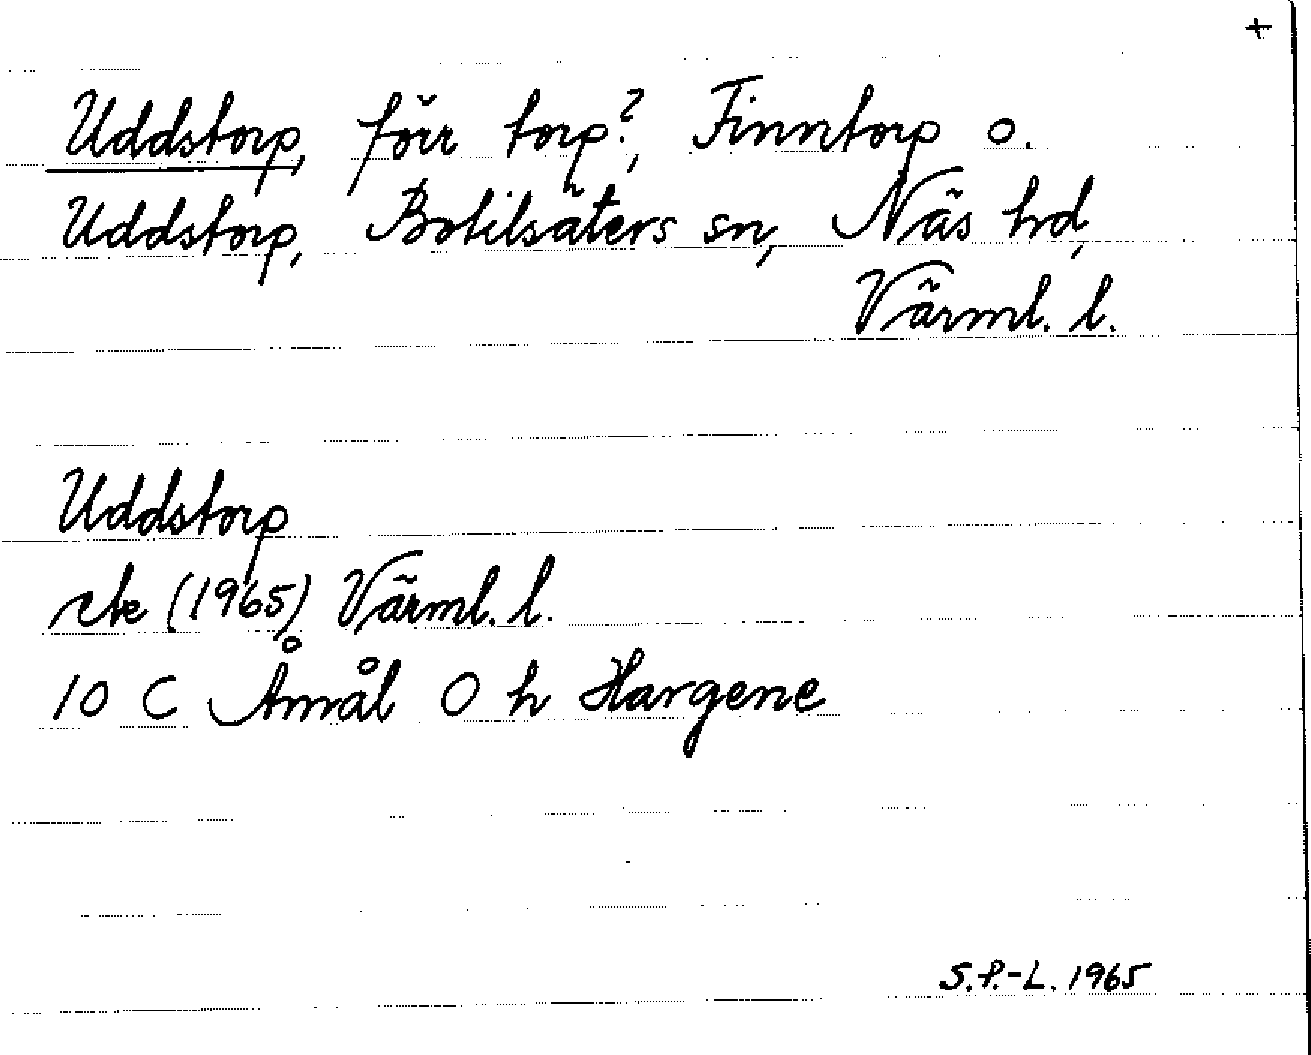 +
Uddstorp, förr torp?, Finntorp o.
Uddstorp, Botilsäters sn, Näs hd,
Värml. l.
Uddstorp
ek (1965) Värml. l.
10 C Åmål O h Hargene
S.P.-L. 1965